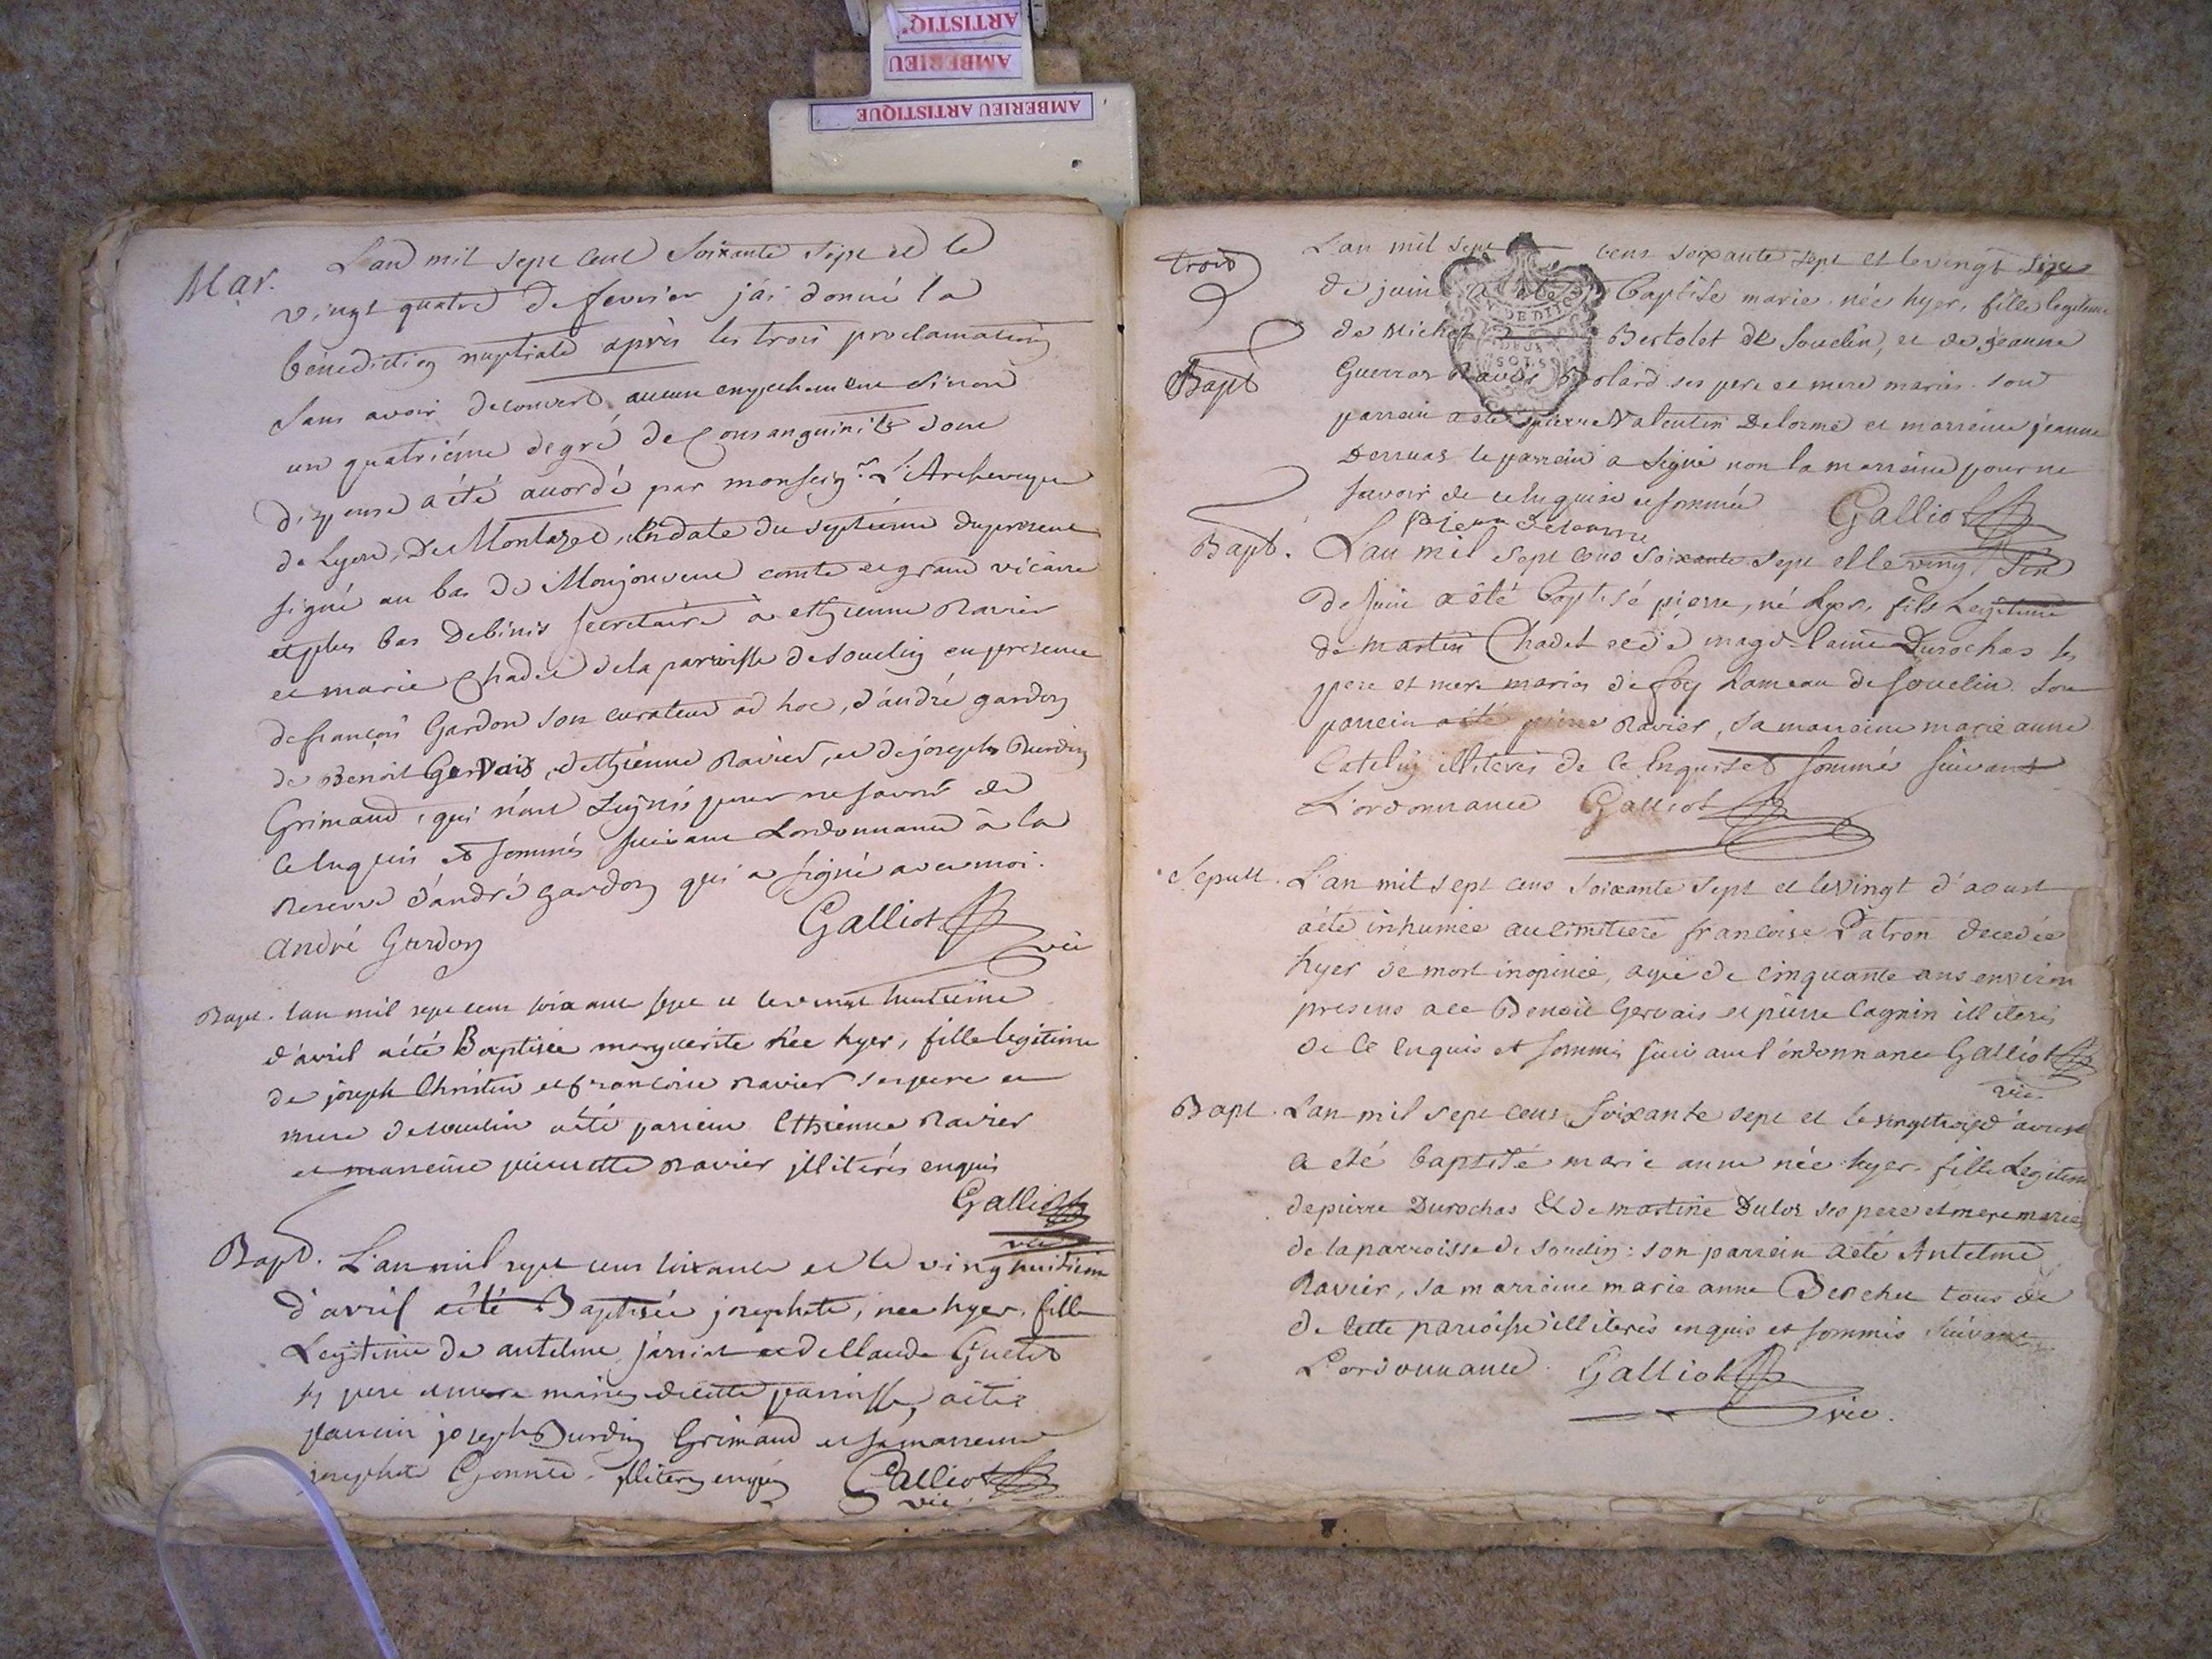 ARTISTIQ
AMBERIEU
AMBERIEU ARTISTIQUE
Mar. L'an mil sept cent soixante sept et le
vingt quatre de fevrier j'ai donné la
bénédiction nuptiale après les trois proclamations
sans avoir decouvert aucun empechement sinon
un quatriéme degré de Consanguinité dont
dispense a été accordé par monseigr. L'Archeveque
de Lyon, De Montazet, en date du septieme du present
signé au bas De Monjouvent comte et grand vicaire
et plus bas Debinis secretaire à ethienne Ravier
et marie Chadet de la parroisse de souclin en presence
de françois Gardon son curateur ad hoc, d'andré gardon
de Benoit Gervais, d'ethienne Ravier, et de joseph Burdin
Grimaud, qui n'ont signés pour ne savoir de
ce enquis et sommés suivant L'ordonnance à la
reserve d'andré gardon qui a signé avec moi.
andré Gardon Galliot
vic
Bapt. L'an mil sept cent soixante sept et le vingt huitieme
d'avril a été Baptisée marguerite née hyer, fille legitime
de joseph Christin et françoise ravier ses pere et
mere de souclin a été parrein Ethienne Ravier
et marreine pierrette ravier illiterés enquis
Galliot
vic
Bapt. L'an mil sept cens soixante et le vingt huitieme
d'avril a été Baptisée josephete, nee hyer, fille
Legitime de antelme et de Claude Guetet
ses pere et mere mariés de cette parroisse, a été
parrein joseph Burdin Grimaud et sa marreine
josephete illiterés enquis Galliot
vic
trois
L'an mil sept cens soixante sept et le vingt six
Bapt
de juin a été Baptisée marie née hyer, fille legitime
de Michel Bertolet de souclin, et de jeanne
Guerras ses pere et mere mariés son
parrein a été pierre Valentin Delorme et marreine jeanne
Derruas le parrein a signé non la marreine pour ne
savoir de ce enquise et sommée Galliot
pierre Delorme
Bapt. L'an mil sept cens soixante sept et le vingt six
de juin a été baptisé pierre, né hyer, fils Legitime
de martin Chadet et de magdelaine Durochas ses
pere et mere mariés de soy hameau de souclin. son
parrein a été pierre Ravier, sa marreine marie anne
Catelin illiterés de ce Enquis et sommés suivant
L'ordonnance Galliot
Sepult. L'an mil sept cens soixante sept et le vingt d'aoust
a été inhumée au cimitiere françoise Patron decedée
hyer de mort inopinée, agée de cinquante ans environ
presens a ce Benoit Gervais et pierre Cagnin illiterés
de ce enquis et sommés suivant l'ordonnance Galliot
vic.
Bapt. L'an mil sept cens soixante sept et le vingt trois d'aoust
a eté baptisé marie anne née hyer fille Legitime
de pierre Durochas & de martine Dulor ses pere et mere mariés
de la parroisse de souclin : son parrein a été Antelme
Ravier, sa marreine marie anne Berchu tous de
de cette parroisse illiterés enquis et sommés suivant
L'ordonnance. Galliot
vic.